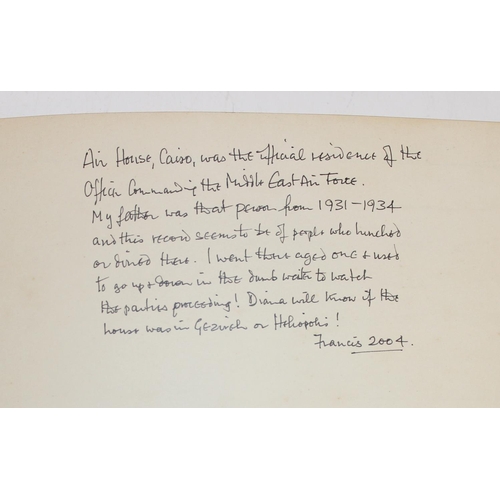 Air House, Cairo, was the official residence of the
Officer Commanding the Middle East Air Force.
My father was that person from 1931-1934
and this record seems to be of people who lunched
or dined there. I went there aged one & used
to go up & down in the dumb waiter to watch
the parties proceeding! Diana will know if the
house was in Gezireh or Heliopolis!
Francis 2004.